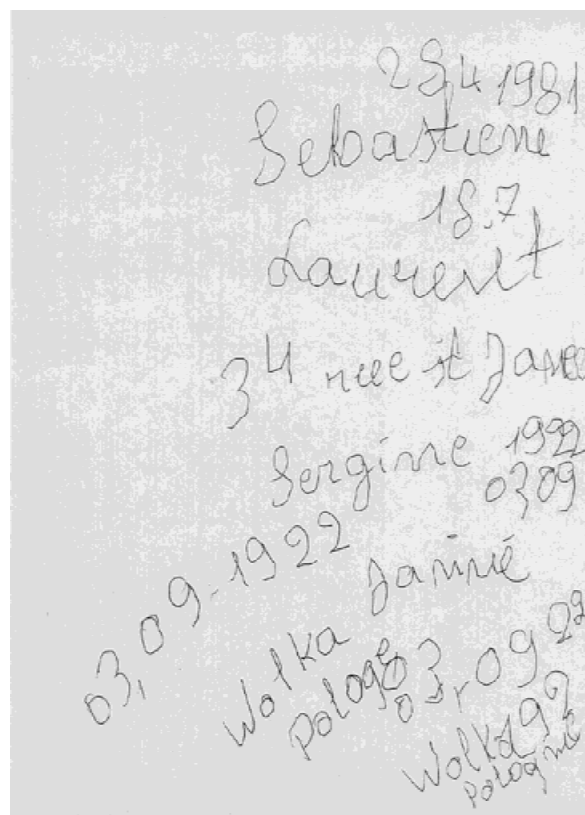 28,4 1981
Sebastiene
18.7
Laurent
34 rue st
Serginne 1922
0309
03,09-1922
Janiné
Wolka
Pologe
03,09 22
Wolka 92
Pologne